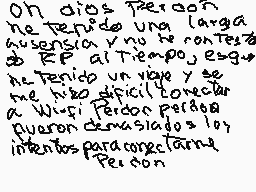 oh dios Perdon
he Tenido una larga
ausensia y no he contesta
do RP al Tiempo, esque
he Tenido un viaje y se
me hizo dificil conectar
a Wi-fi Perdon perdon
fueron demasiados los
intentos para conectarme
Perdon